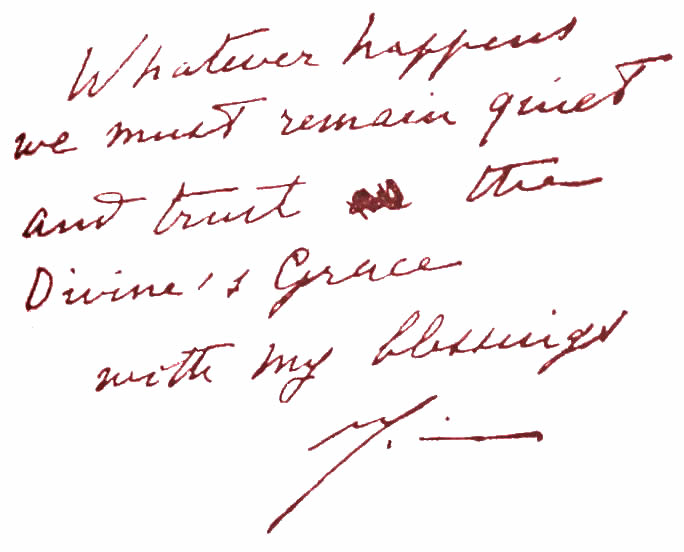 Whatever happens
we must remain quiet
and trust the
Divine's Grace
with my blessings